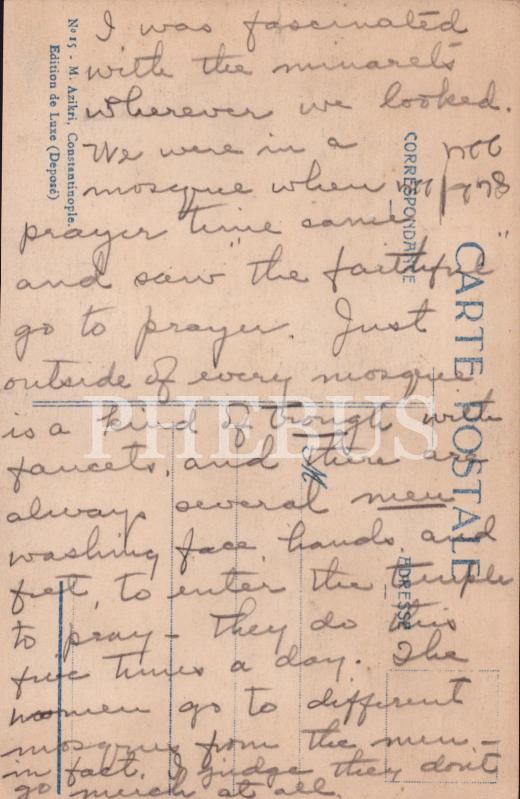 I was fascinated
with the minarets
wherever we looked.
We were in a
mosque when
prayer time came
and saw the "faithful"
go to prayer. Just
outside of every mosque
is a kind of trough with
faucets, and there are
always several men
washing face, hands and
feet, to enter the temple
to pray - they do this
five times a day. The
women go to different
mosques from the men -
in fact, I judge they don't
go much at all.
No 15 - M. Azikri, Constantinople.
Edition de Luxe (Deposé)
CARTE POSTALE
CORRESPONDANCE
ADRESSE
PHEBUS